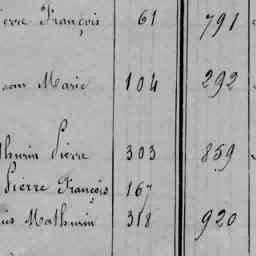 Pierre François 61 791
Jean Marie 104 292
Mathurin Pierre 303 859
Pierre François 167
Mathurin 318 920